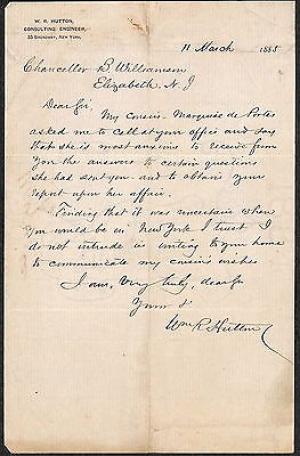 W. R. HUTTON,
CONSULTING ENGINEER,
35 BROADWAY, NEW YORK.
11 March 1885
Chancellor B. Williamson
Elizabeth. N. J
Dear Sir,
My cousin Marquise de Portes
asked me to call at your office and say
that she is most anxious to receive from
you the answers to certain questions
she had sent you and to obtain your
report upon her affair.
Finding that it was uncertain when
you would be in New York I trust I
do not intrude in writing to your home
to communicate my cousin's wishes
I am, Very truly, dear Sir
Yours &
Wm R Hutton